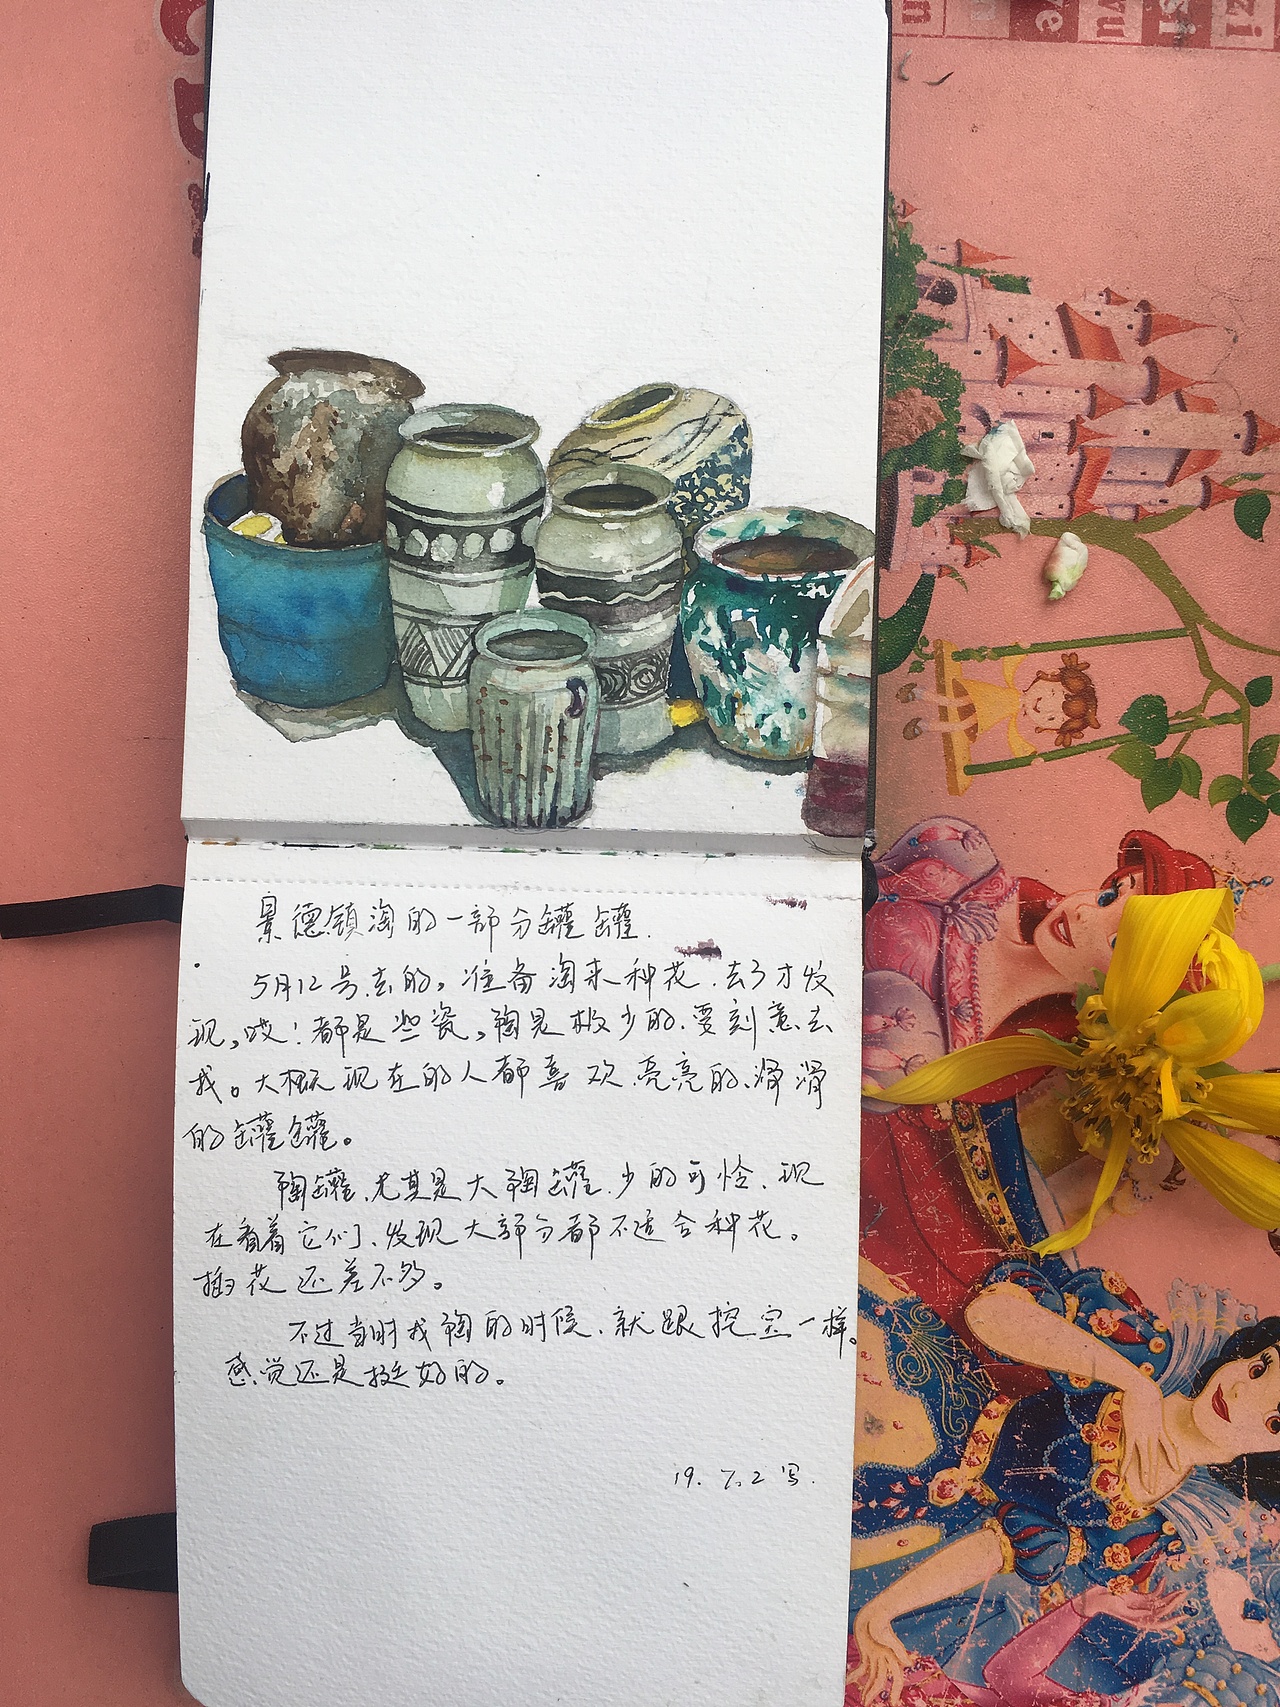 景德镇淘的一部分罐罐.
5月12号去的,准备淘来种花.去了才发
现,哎!都是些瓷,陶是极少的.要刻意去
找。大概现在的人都喜欢亮亮的、滑滑
的罐罐。
陶罐、尤其是大陶罐.少的可怜、现
在看着它们、发现大部分都不适合种花。
插花还差不多。
不过当时找陶的时候、就跟挖宝一样。
感觉还是挺好的。
19.7.2写.